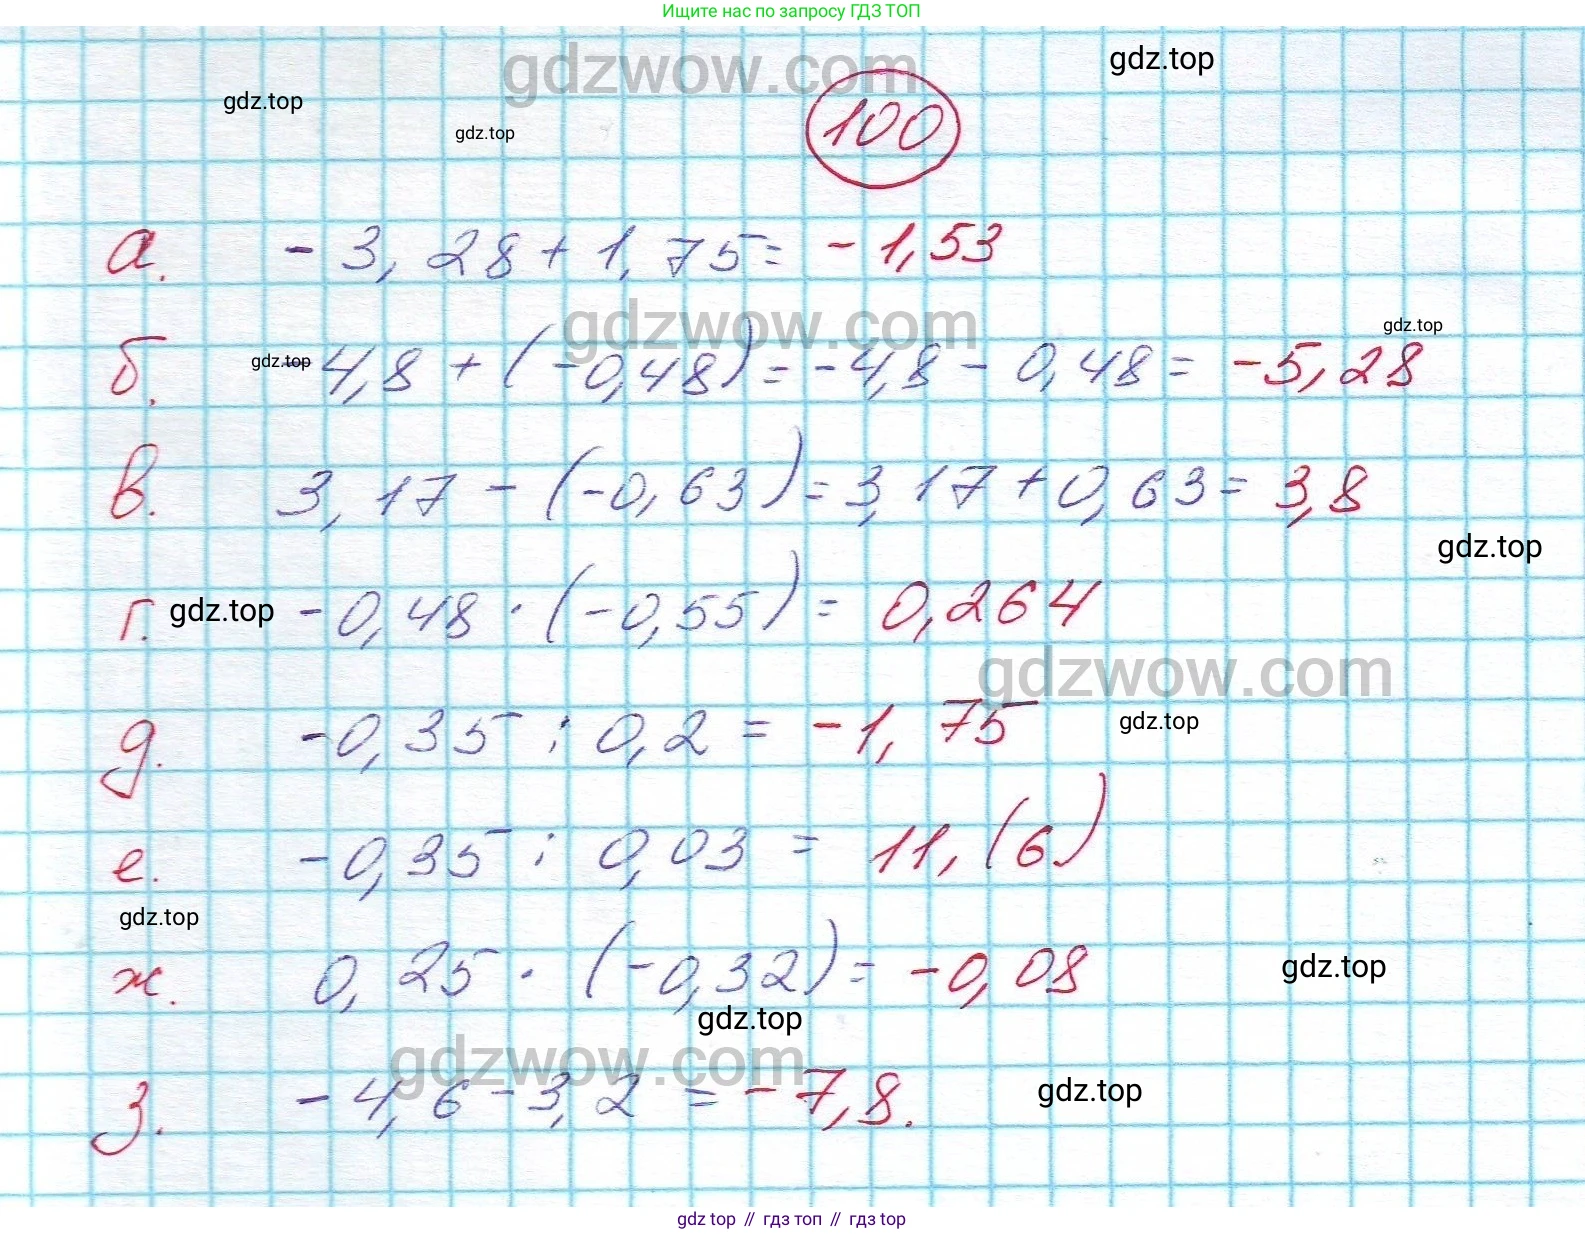 Ищите нас по запросу ГДЗ ТОП
gdzwow.com
gdz.top
gdz.top
gdz.top
100
а. - 3,28 + 1,75 = - 1,53
gdzwow.com
gdz.top
б. gdz.top - 4,8 + (-0,48) = - 4,8 - 0,48 = - 5,28
в. 3,17 - (-0,63) = 3,17 + 0,63 = 3,8
gdz.top
г. gdz.top - 0,48 · (-0,55) = 0,264
gdzwow.com
д. - 0,35 : 0,2 = - 1,75 gdz.top
е. - 0,35 : 0,03 = 11,(6)
gdz.top
ж. 0,25 · (-0,32) = - 0,08 gdz.top
gdz.top
gdzwow.com
з. - 4,6 - 3,2 = - 7,8. gdz.top
gdz top // гдз топ // гдз top